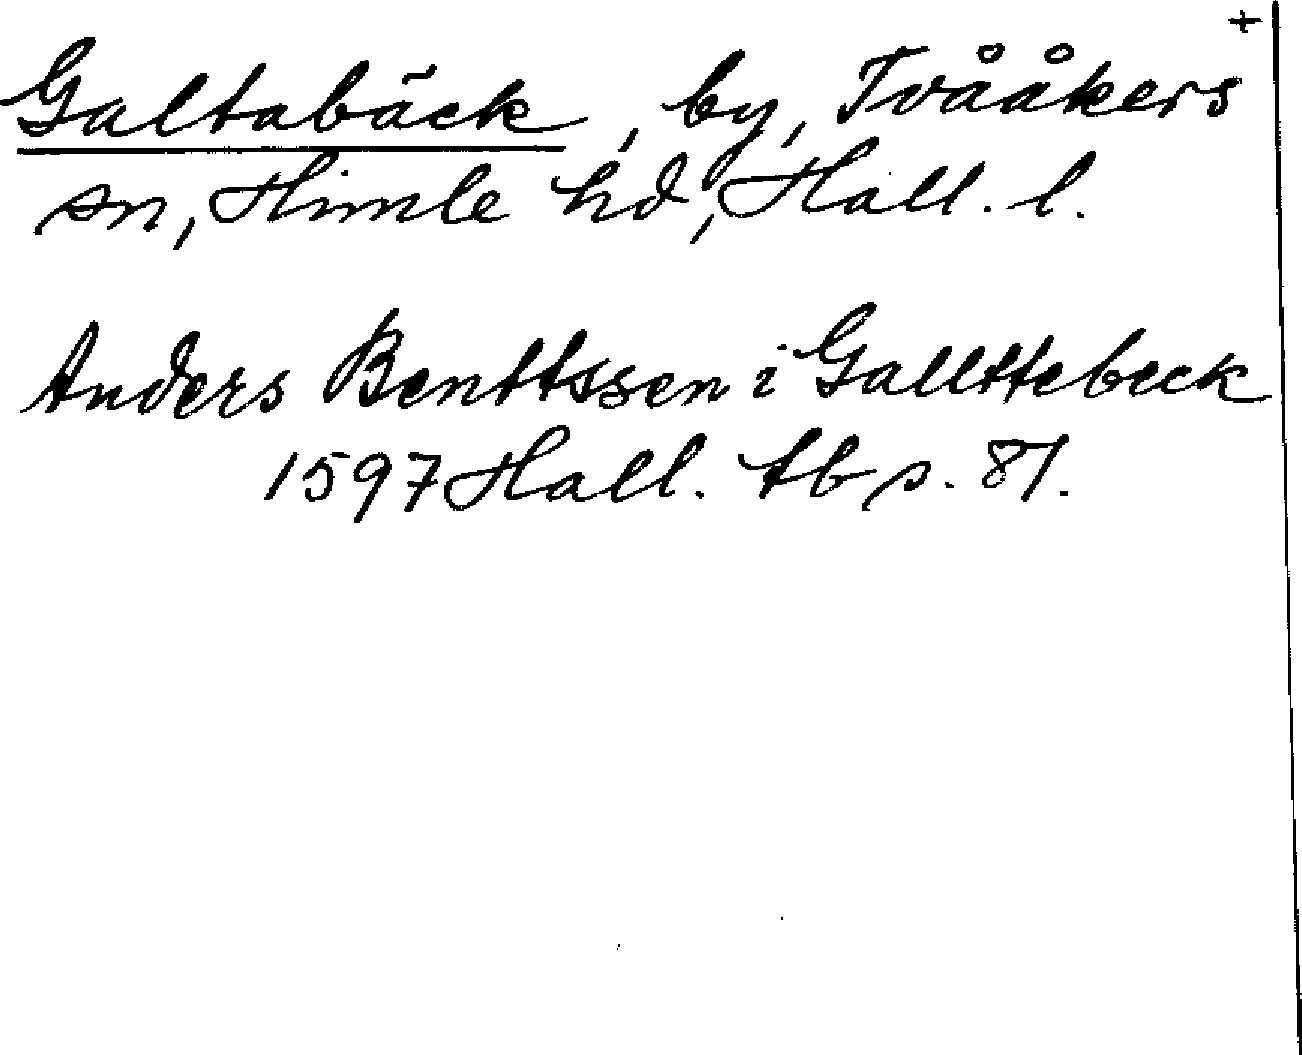 +
Galtabäck, by, Tvååkers
sn, Himle hd, Hall. l.
Anders Benttssen i Gallttebeck
1597 Hall. tb s. 81.